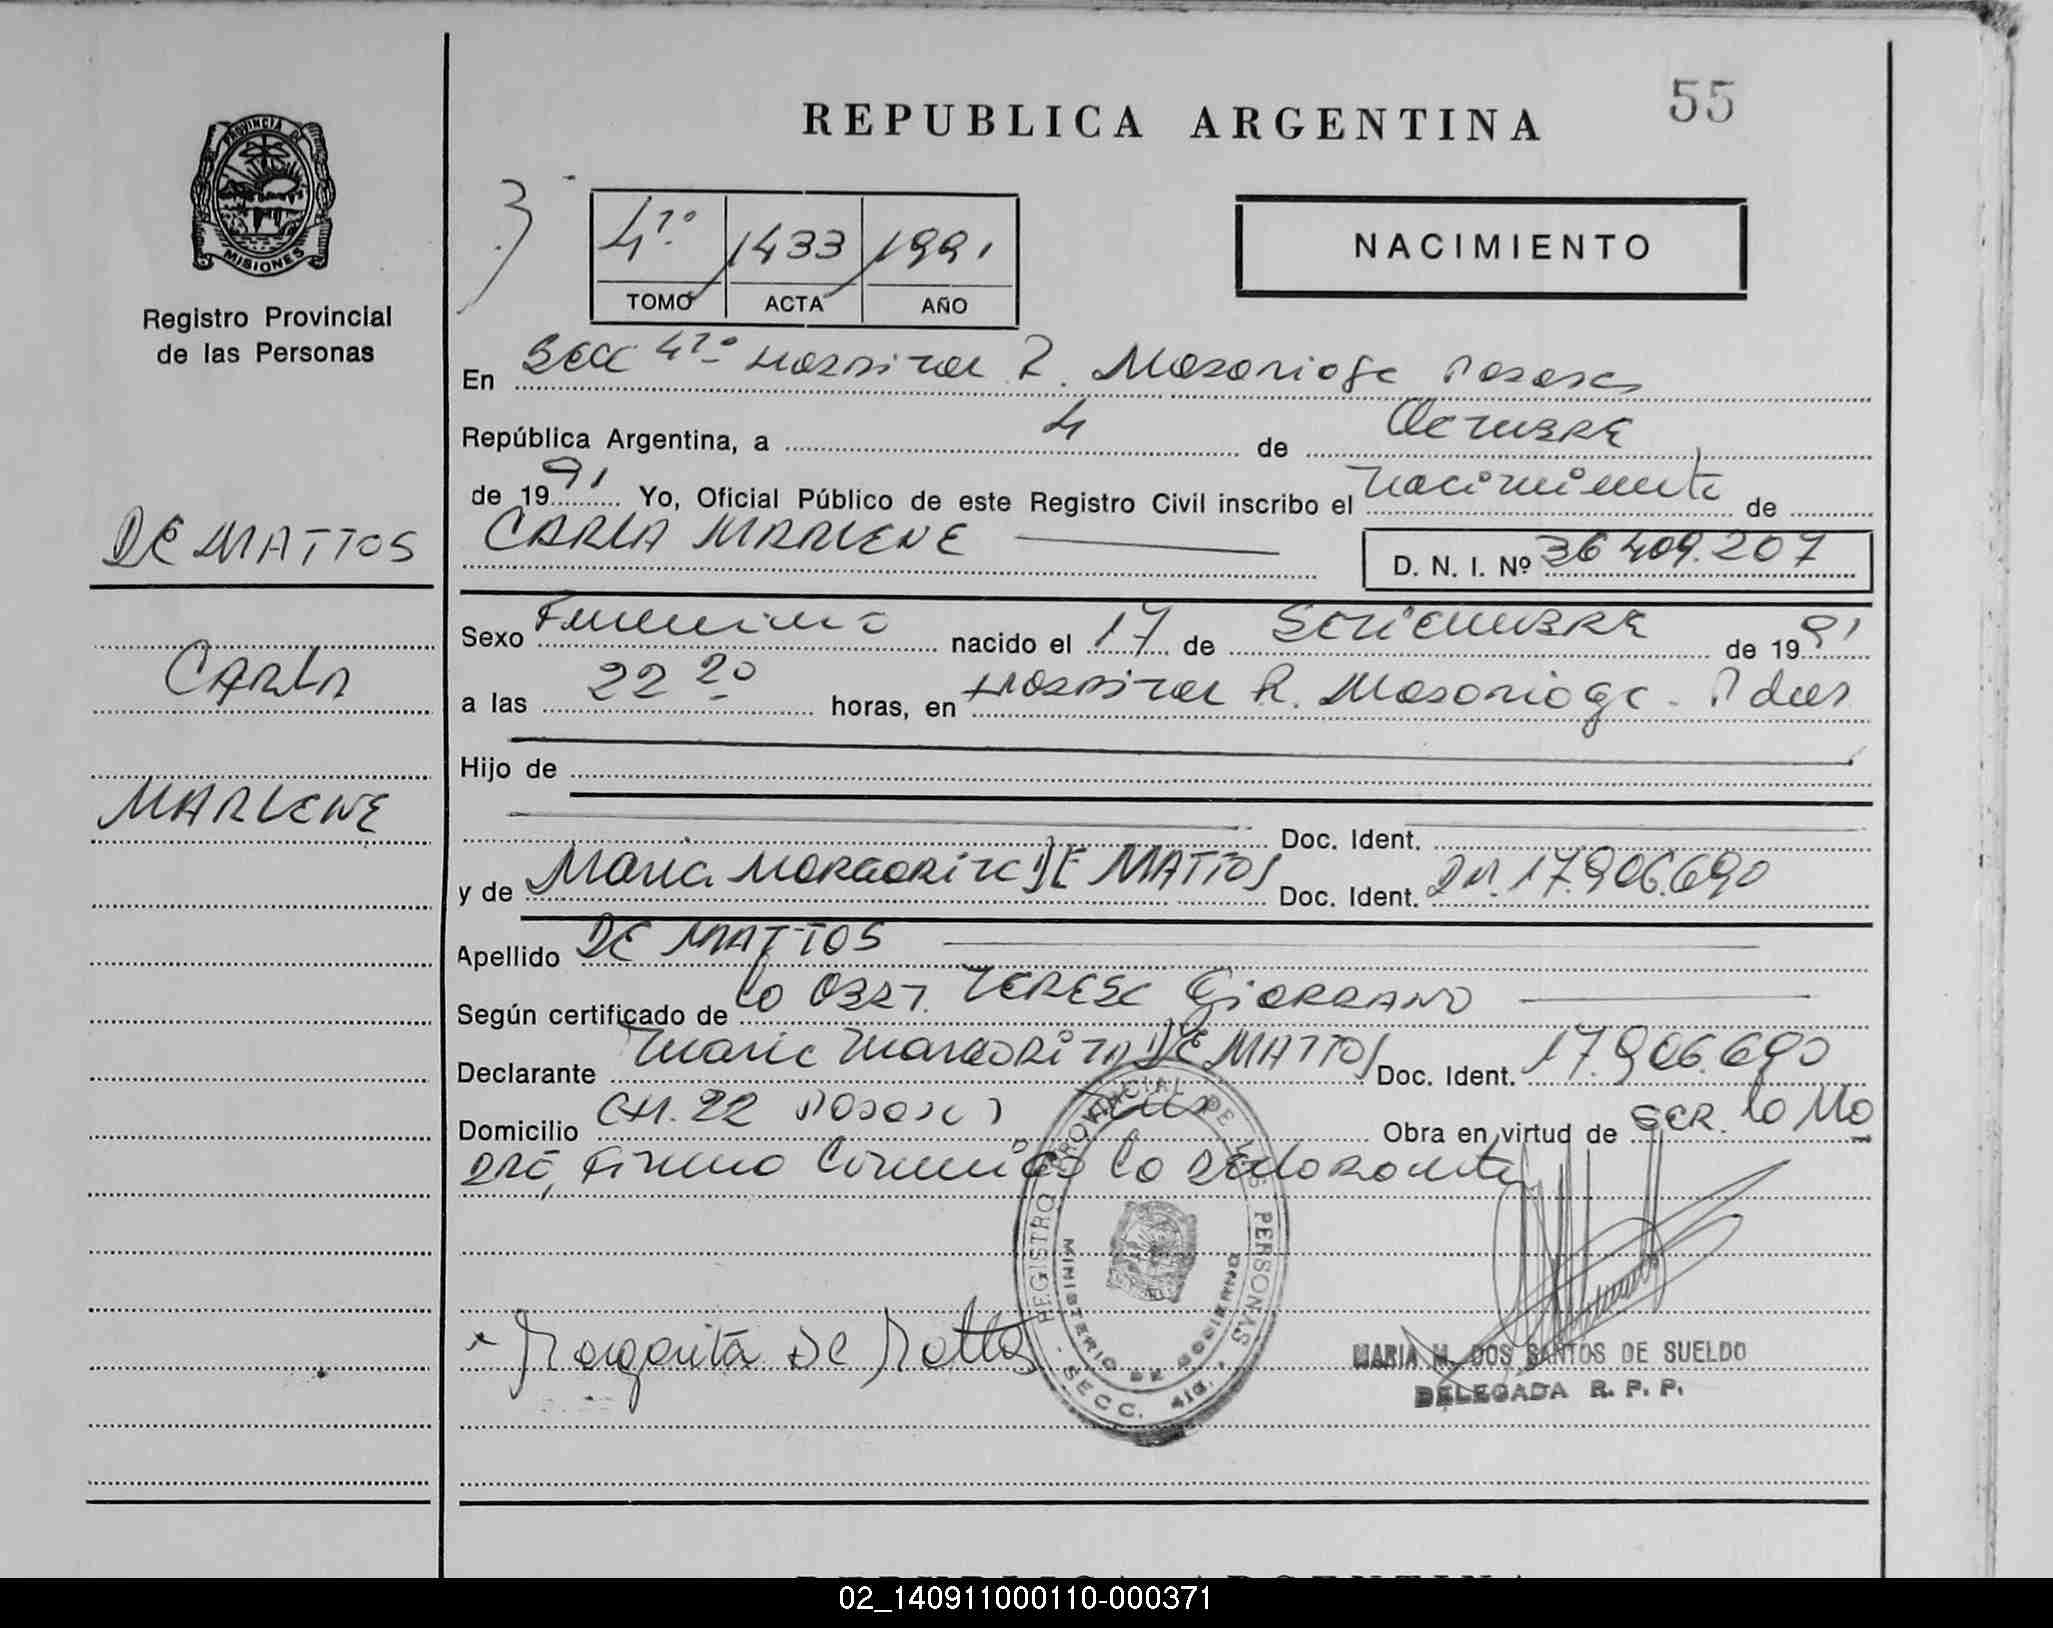 55
REPUBLICA ARGENTINA
PROVINCIA DE
MISIONES
Registro Provincial
de las Personas
3
4ta 1433 1991
TOMO ACTA AÑO
NACIMIENTO
En Secc 4ta Hospital R. Madariaga Posadas
República Argentina, a 4 de Octubre
de 1991 Yo, Oficial Público de este Registro Civil inscribo el Nacimiento de
DE MATTOS
CARLA MARLENE
D. N. I. Nº 36 409.207
Sexo Femenino nacido el 17 de Setiembre de 1991
CARLA
a las 22 20 horas, en Hospital R. Madariaga - Pdas
Hijo de
MARLENE
Doc. Ident.
y de Maria Margarita DE MATTOS Doc. Ident. 17.906.690
Apellido DE MATTOS
Según certificado de la Obst. Teresa
Declarante Maria Margarita DE MATTOS Doc. Ident. 17.906.690
Domicilio CH. 22 Posadas Obra en virtud de ser la Ma
dre, Firma Conmigo la Declarante
REGISTRO PROVINCIAL DE LAS PERSONAS
MINISTERIO DE GOBIERNO
SECC. 4ta.
Margarita De Mattos
MARIA M. DOS SANTOS DE SUELDO
DELEGADA R. P. P.
REPUBLICA ARGENTINA
02_140911000110-000371